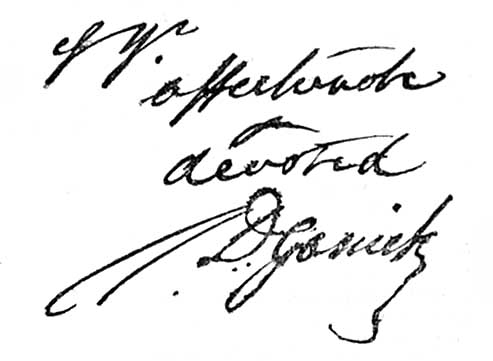 & Yr.
affectionate
devoted
D. Garrick